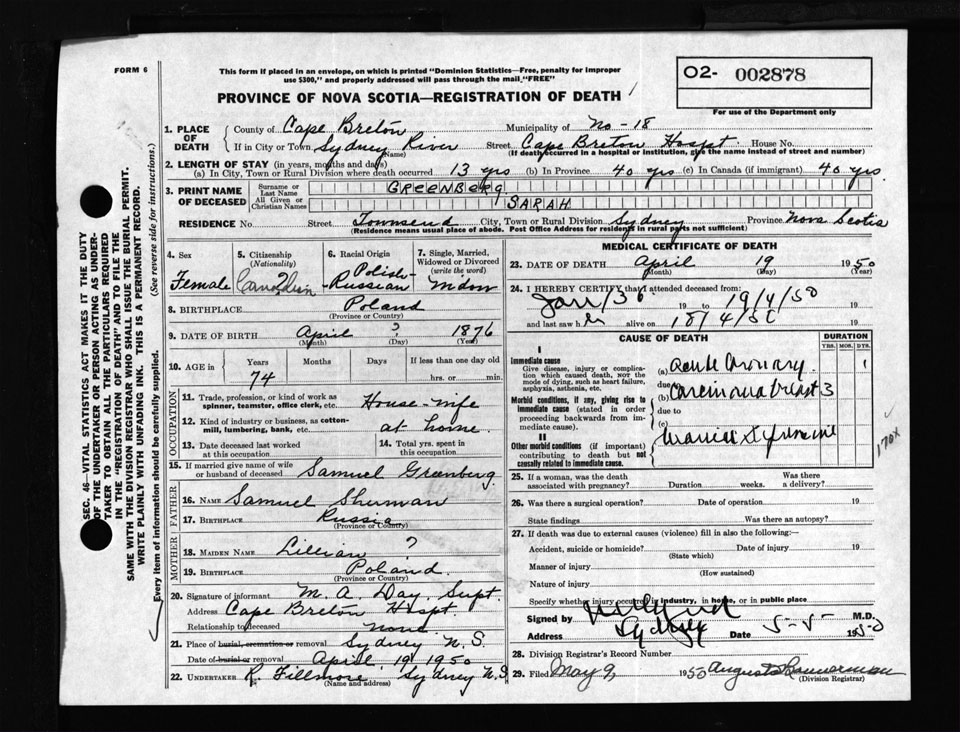 FORM 6
This form if placed in an envelope, on which is printed "Dominion Statistics—Free, penalty for improper
use $300," and properly addressed will pass through the mail "FREE"
PROVINCE OF NOVA SCOTIA—REGISTRATION OF DEATH
O2- 002878
For use of the Department only
SEC. 46—VITAL STATISTICS ACT MAKES IT THE DUTY
OF THE UNDERTAKER OR PERSON ACTING AS UNDER-
TAKER TO OBTAIN ALL THE PARTICULARS REQUIRED
IN THE "REGISTRATION OF DEATH" AND TO FILE THE
SAME WITH THE DIVISION REGISTRAR WHO SHALL ISSUE THE BURIAL PERMIT.
WRITE PLAINLY WITH UNFADING INK. THIS IS A PERMANENT RECORD.
Every item of information should be carefully supplied. (See reverse side for instructions.)
1. PLACE OF DEATH
County of Cape Breton Municipality of No-18
If in City or Town Sydney River Street Cape Breton Hospt. House No.
(Name) (If death occurred in a hospital or institution, give the name instead of street and number)
2. LENGTH OF STAY (in years, months and days)
(a) In City, Town or Rural Division where death occurred 13 yrs (b) In Province 40 yrs (c) In Canada (if immigrant) 40 yrs.
3. PRINT NAME OF DECEASED
Surname or Last Name GREENBERG
All Given or Christian Names SARAH
RESIDENCE No. Street Townsend City, Town or Rural Division Sydney Province Nova Scotia
(Residence means usual place of abode. Post Office Address for residents in rural parts not sufficient)
4. Sex Female
5. Citizenship (Nationality) Canadian
6. Racial Origin Polish-Russian
7. Single, Married, Widowed or Divorced (write the word) Widow
8. BIRTHPLACE Poland
(Province or Country)
9. DATE OF BIRTH April ? 1876
(Month) (Day) (Year)
10. AGE in Years Months Days If less than one day old
74 hrs. or min.
OCCUPATION
11. Trade, profession, or kind of work as spinner, teamster, office clerk, etc. House-wife
12. Kind of industry or business, as cotton-mill, lumbering, bank, etc. at home.
13. Date deceased last worked at this occupation
14. Total yrs. spent in this occupation
15. If married give name of wife or husband of deceased Samuel Greenberg.
FATHER
16. NAME Samuel Shuman
17. BIRTHPLACE Russia
(Province or Country)
MOTHER
18. MAIDEN NAME Lillian ?
19. BIRTHPLACE Poland.
(Province or Country)
20. Signature of informant M. A. Day. Supt.
Address Cape Breton Hospt
Relationship to deceased None
21. Place of burial, cremation or removal Sydney N.S.
Date of burial or removal April 19 1950
22. UNDERTAKER R. Fillmore Sydney N.S
(Name and address)
MEDICAL CERTIFICATE OF DEATH
23. DATE OF DEATH April 19 1950
(Month) (Day) (Year)
24. I HEREBY CERTIFY that I attended deceased from:
19 to 19/4/50
and last saw h alive on 18/4/50
CAUSE OF DEATH
DURATION
YRS. MOS. DYS.
I
Immediate cause
Give disease, injury or complication which caused death, NOT the mode of dying, such as heart failure, asphyxia, asthenia, etc.
(a) Acute Coronary. 1
due to
Morbid conditions, if any, giving rise to immediate cause (stated in order proceeding backwards from immediate cause).
(b) Carcinoma breast 3
due to
(c)
II
Other morbid conditions (if important) contributing to death but not causally related to immediate cause.
170x
25. If a woman, was the death associated with pregnancy? Duration weeks. Was there a delivery?
26. Was there a surgical operation? Date of operation 19
State findings Was there an autopsy?
27. If death was due to external causes (violence) fill in also the following:—
Accident, suicide or homicide? Date of injury 19
(State which)
Manner of injury
(How sustained)
Nature of injury
Specify whether injury occurred in industry, in home, or in public place
Signed by M.D.
Address Sydney Date 5-5- 1950
28. Division Registrar's Record Number
29. Filed May 9 1950
(Division Registrar)